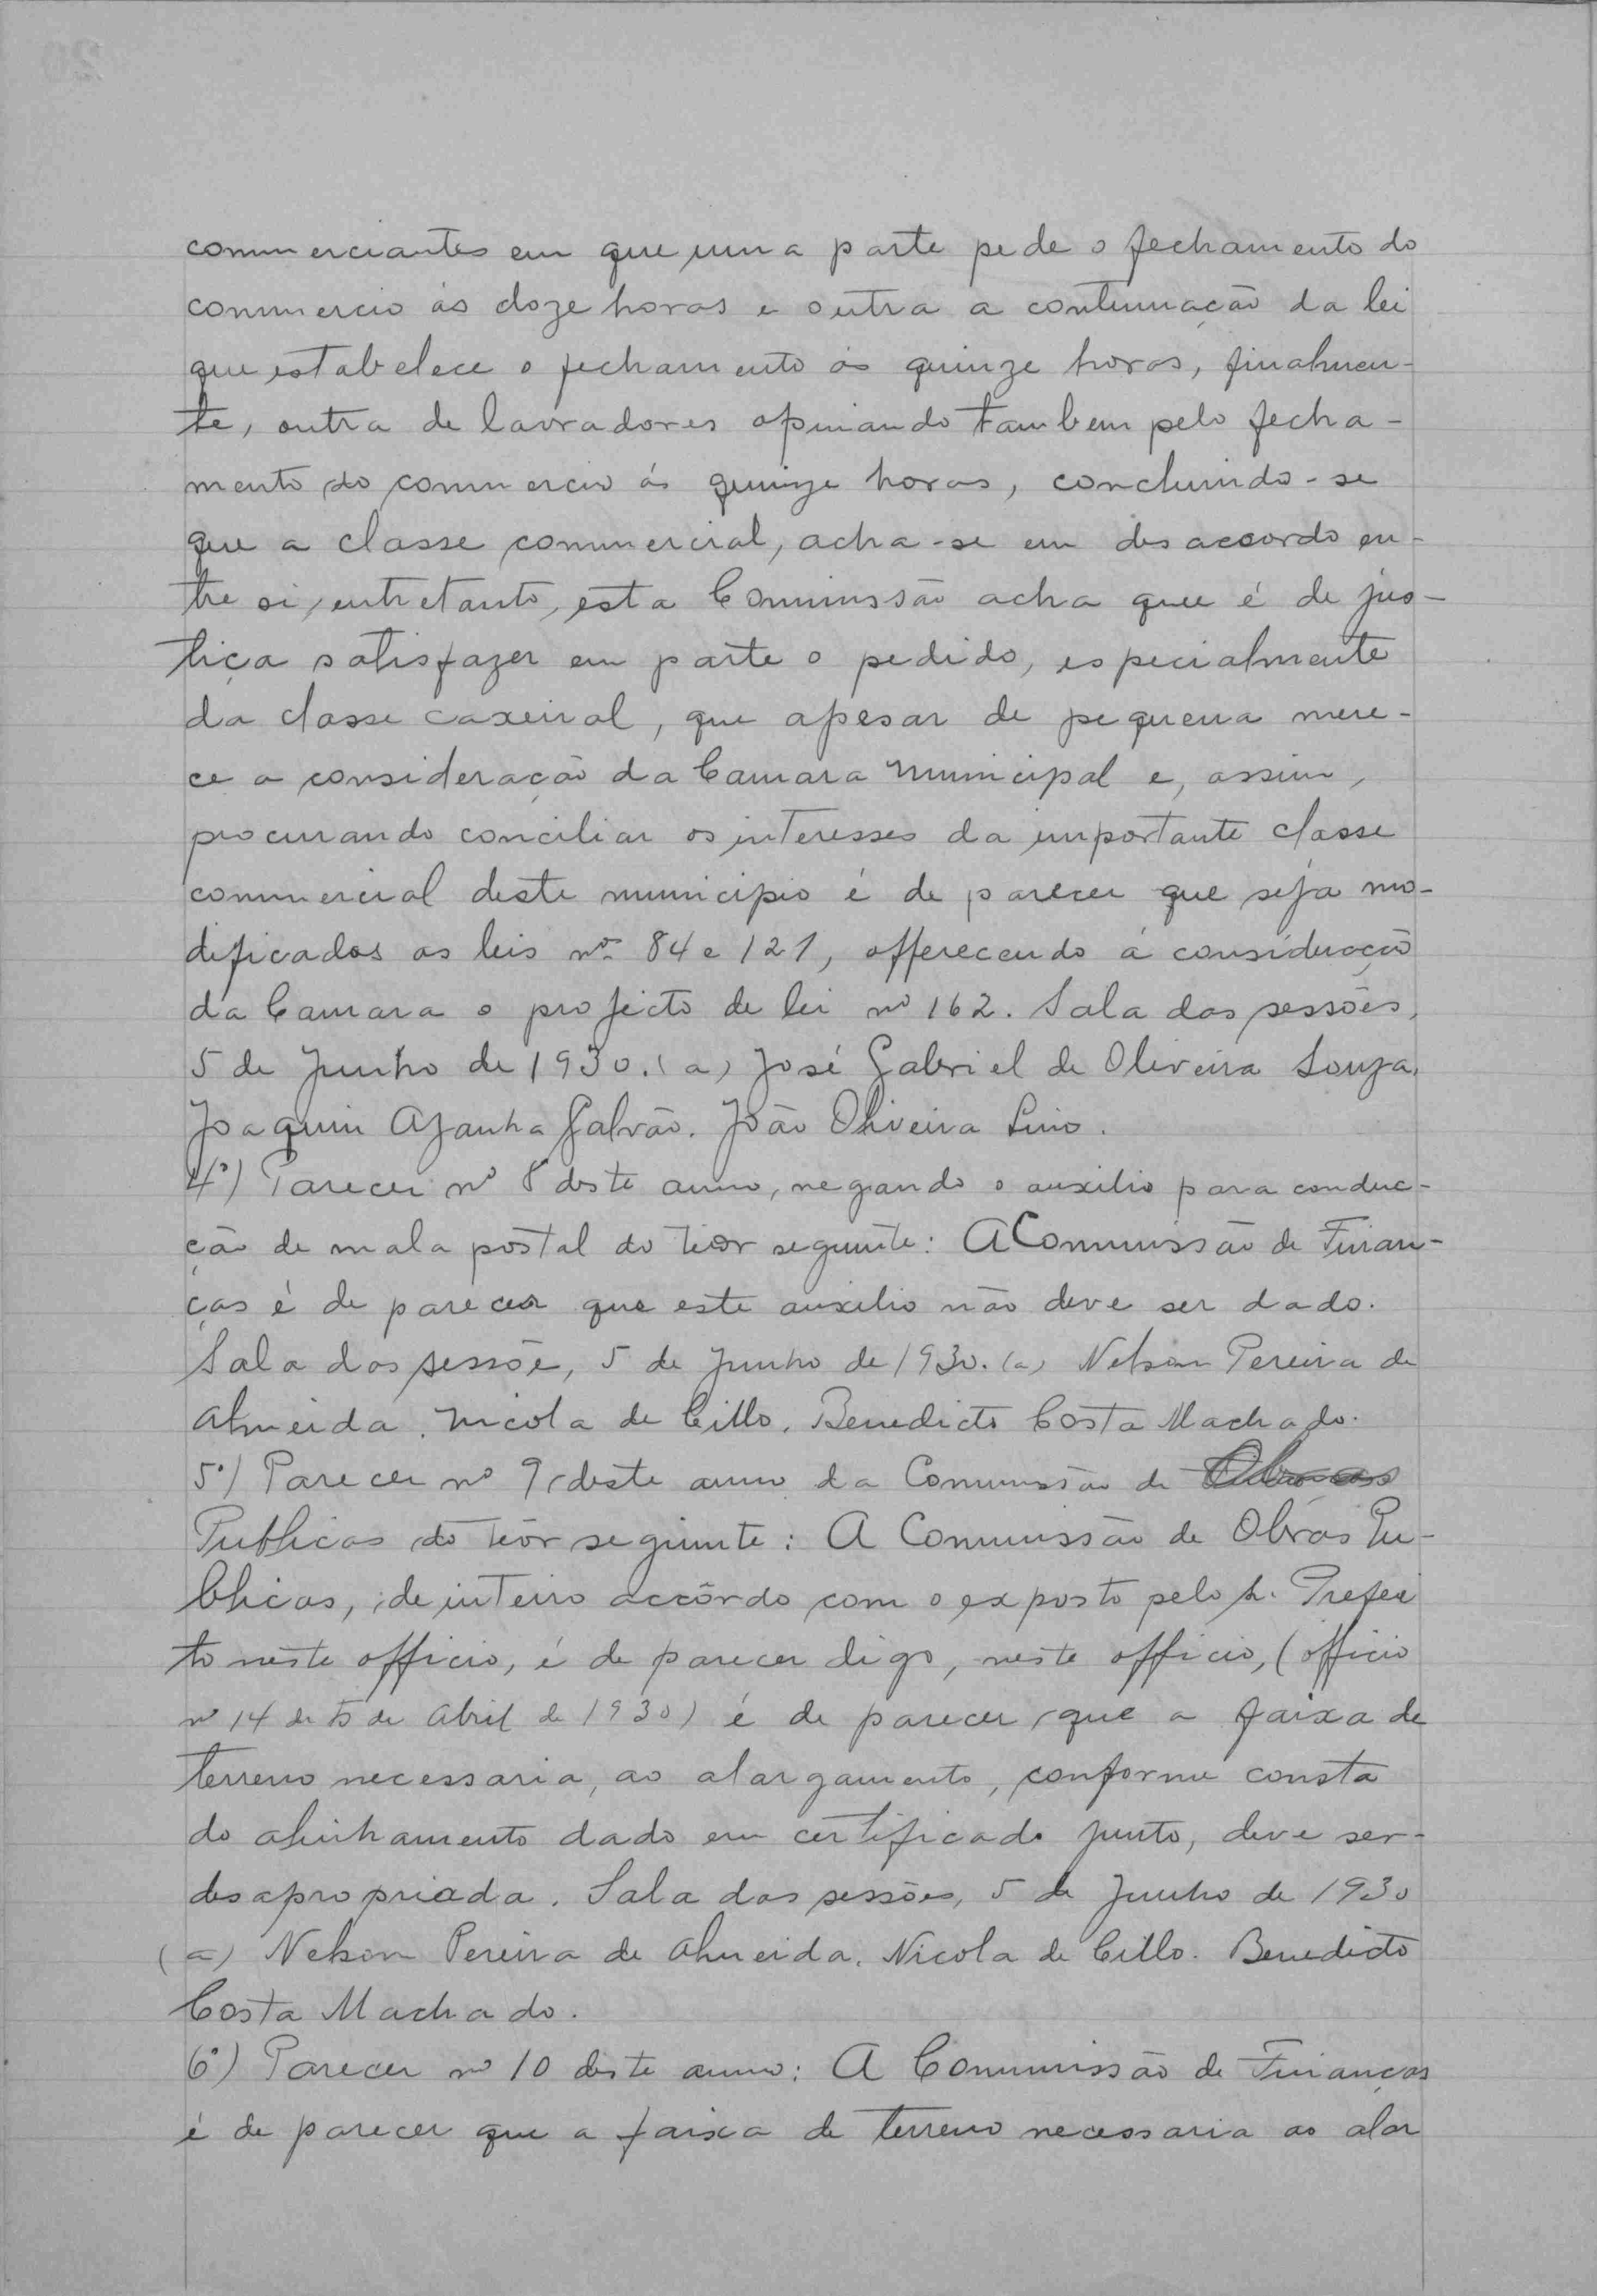 commerciantes em que uma parte pede o fechamento do
commercio ás doze horas e outra a continuação da lei
que estabelece o fechamento ás quinze horas, finalmen-
te, outra de lavradores opinando tambem pelo fecha-
mento do commercio ás quinze horas, concluindo-se
que a classe commercial, acha-se em desaccordo en-
tre si, entretanto, esta Commissão acha que é de jus-
tiça satisfazer em parte o pedido, especialmente
da classe caxeiral, que apesar de pequena mere-
ce a consideração da Camara Municipal e, assim,
procurando conciliar os interesses da importante classe
commercial deste municipio é de parecer que seja mo-
dificados as leis nos 84 e 121, offerecendo á consideração
da Camara o projecto de lei nº 162. Sala das sessões,
5 de Junho de 1930. (a) José Gabriel de Oliveira Souza.
Joaquim Azanha Galvão. João Oliveira Lino.
4º) Parecer nº 8 deste anno, negando o auxilio para conduc-
ção de mala postal do teôr seguinte: A Commissão de Finan-
ças é de parecer que este auxilio não deve ser dado.
Sala das sessõe, 5 de Junho de 1930. (a) Nelson Pereira de
Almeida. Nicola de Cillo. Benedicto Costa Machado.
5º) Parecer nº 9 deste anno da Commissão de Obras
Publicas do teôr seguinte: A Commissão de Obras Pu-
blicas, de inteiro accôrdo com o exposto pelo s. Prefei
to neste officio, é de parecer digo, neste officio, (officio
nº 14 de 5 de Abril de 1930) é de parecer, que a faixa de
terreno necessaria, ao alargamento, conforme consta
do alinhamento dado em certificado junto, deve ser-
desapropriada. Sala das sessões, 5 de Junho de 1930
(a) Nelson Pereira de Almeida. Nicola de Cillo. Benedicto
Costa Machado.
6º) Parecer nº 10 deste anno: A Commissão de Finanças
é de parecer que a faixa de terreno necessaria ao alar